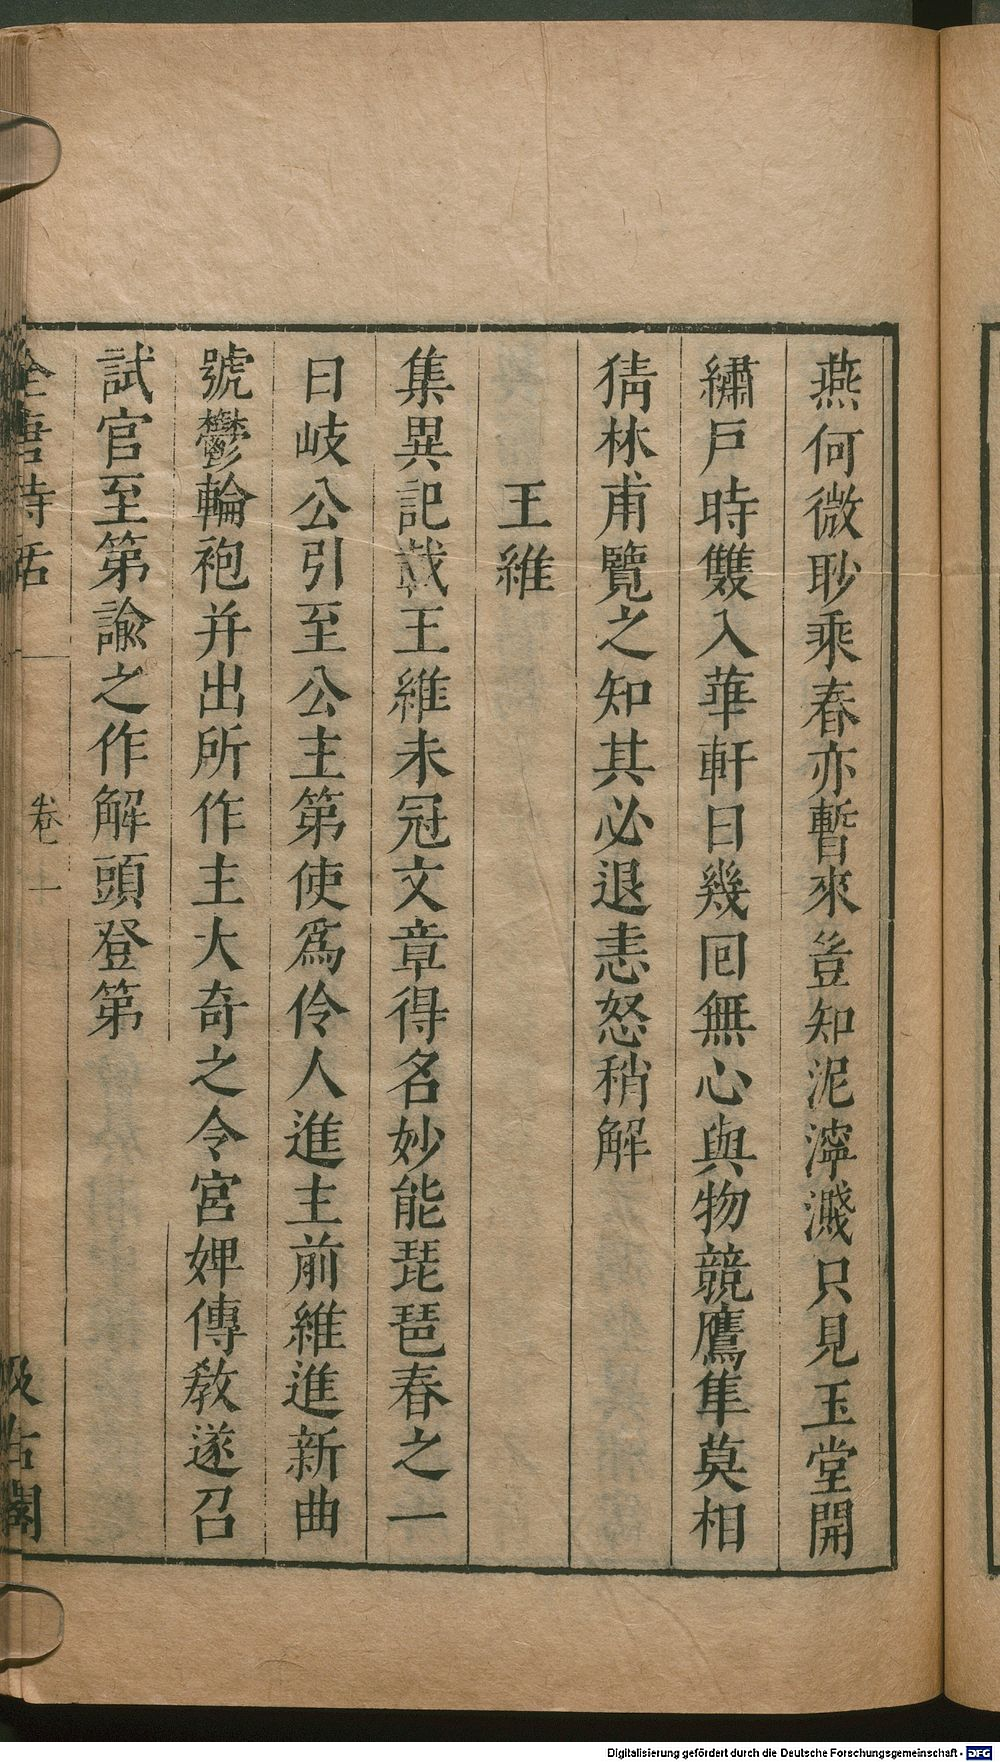 燕何微眇乘春亦暫來豈知泥滓濺只見玉堂開
繡戸時雙入華軒日幾囘無心與物競鷹隼莫相
猜林甫覽之知其必退恚怒稍解
王維
集異記載王維未冠文章得名妙能琵琶春之一
日岐公引至公主第使爲伶人進主前維進新曲
號鬱輪袍并出所作主大奇之令宮婢傳敎遂召
試官至第諭之作解頭登第
全唐詩話
卷一
汲古閣
Digitalisierung gefördert durch die Deutsche Forschungsgemeinschaft - DFG